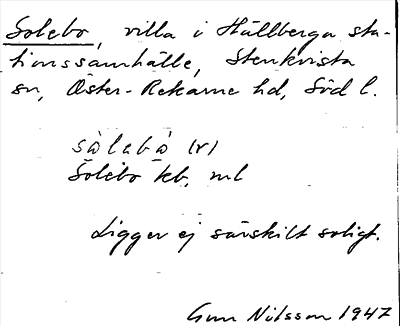 Solebo, villa i Hällberga sta-
tionssamhälle, Stenkvista
sn, Öster-Rekarne hd, Söd l.
sὰlebὰ (r)
Solebo kb, ml
Ligger ej särskilt soligt.
Gun Nilsson 1947